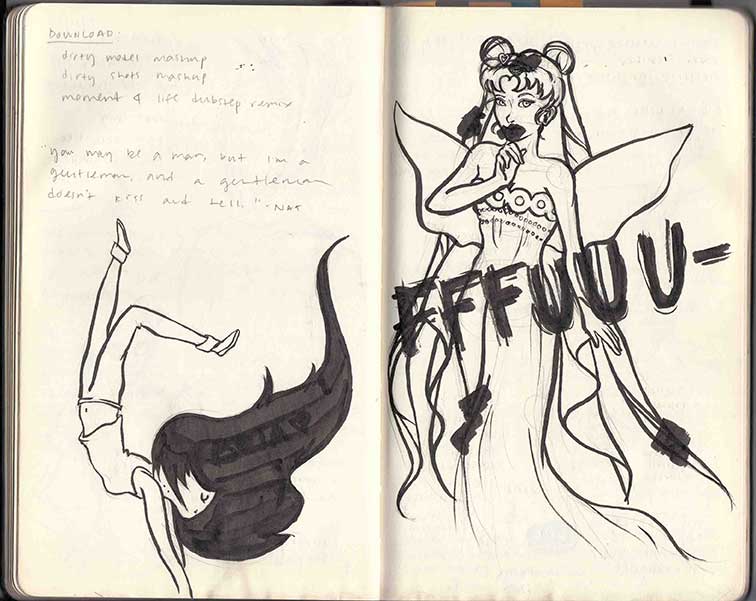 DOWNLOAD:
dirty motel mashup
dirty shots mashup
moment 4 life dubstep remix
"you may be a man, but i'm a
gentleman, and a gentleman
doesn't kiss and tell." -NAT
FFFUUUU-